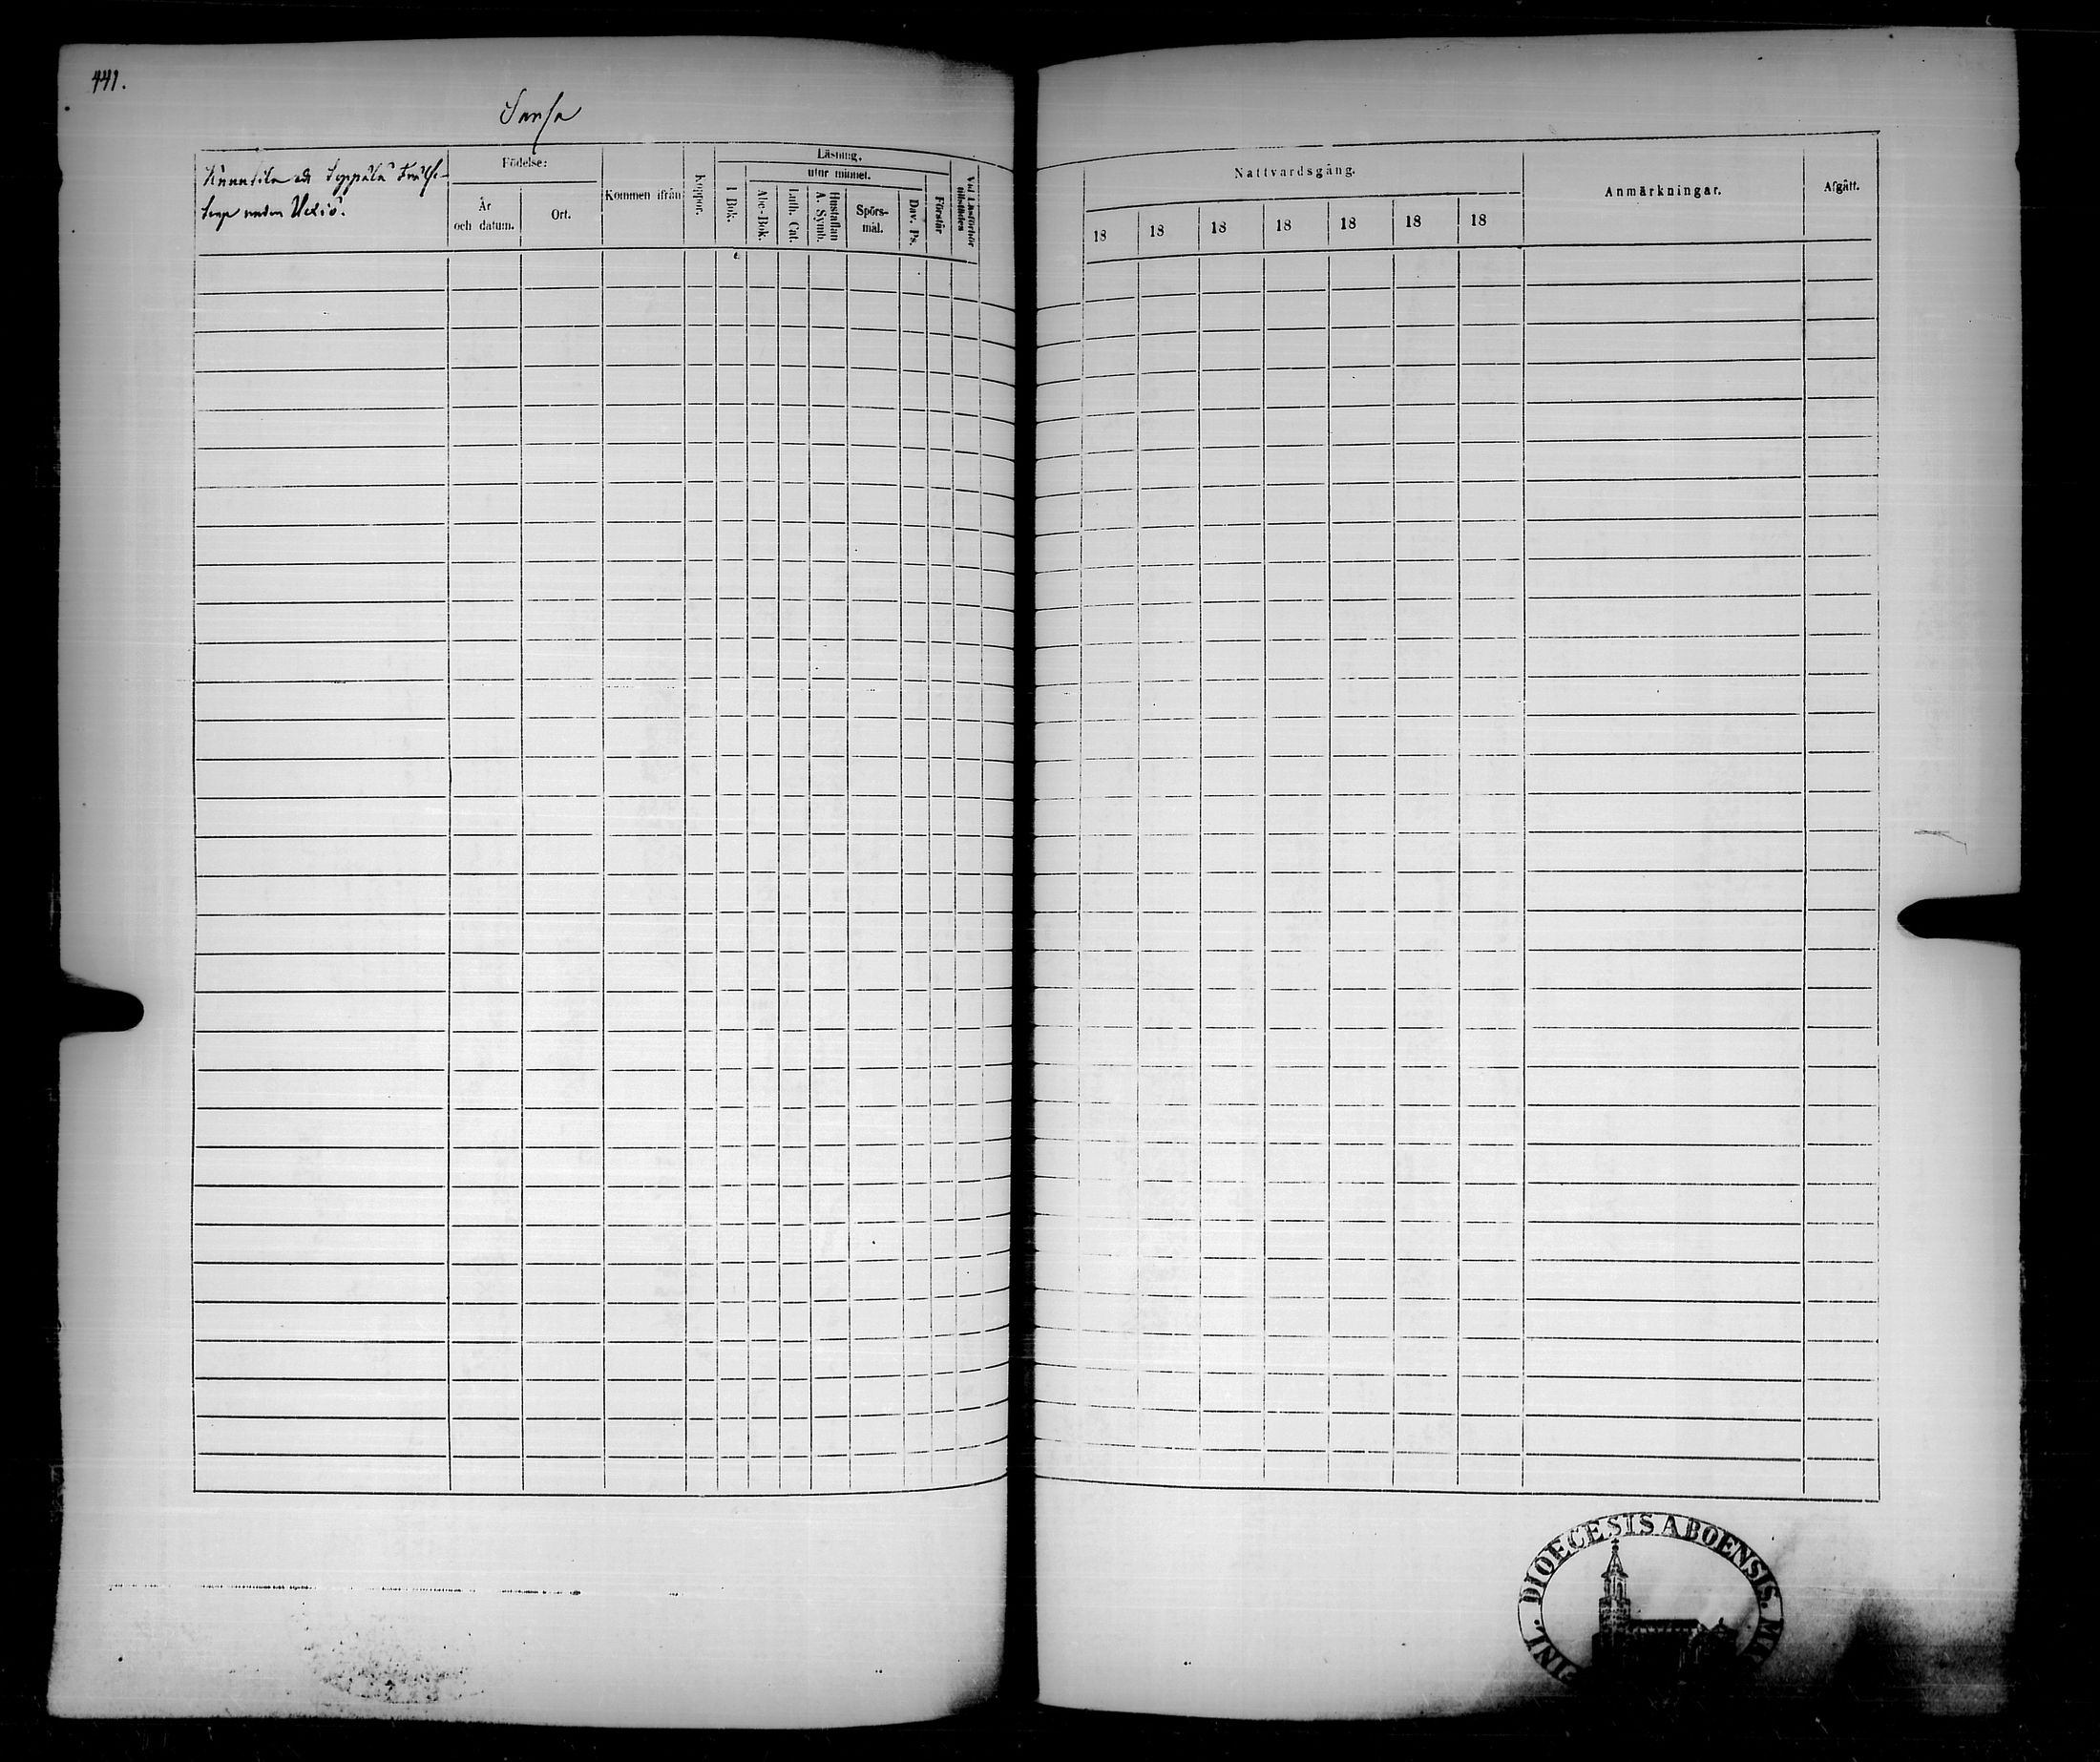 441.
Sarsa
Kunnsila ell Seppälä Frälse-
under
Födelse:
År
och datum.
Ort.
Kommen ifrån
Koppor.
Läsning.
utur minnet.
I Bok.
Abc-Bok.
Luth. Cat.
Hustaflan
A. Symb.
Spörs-
mål.
Dav. Ps.
Förstår
Vid Läsförhör
tillstädes
Nattvardsgång.
18 18 18 18 18 18 18
Anmärkningar.
Afgått.
DIOECESIS ABOENSIS.